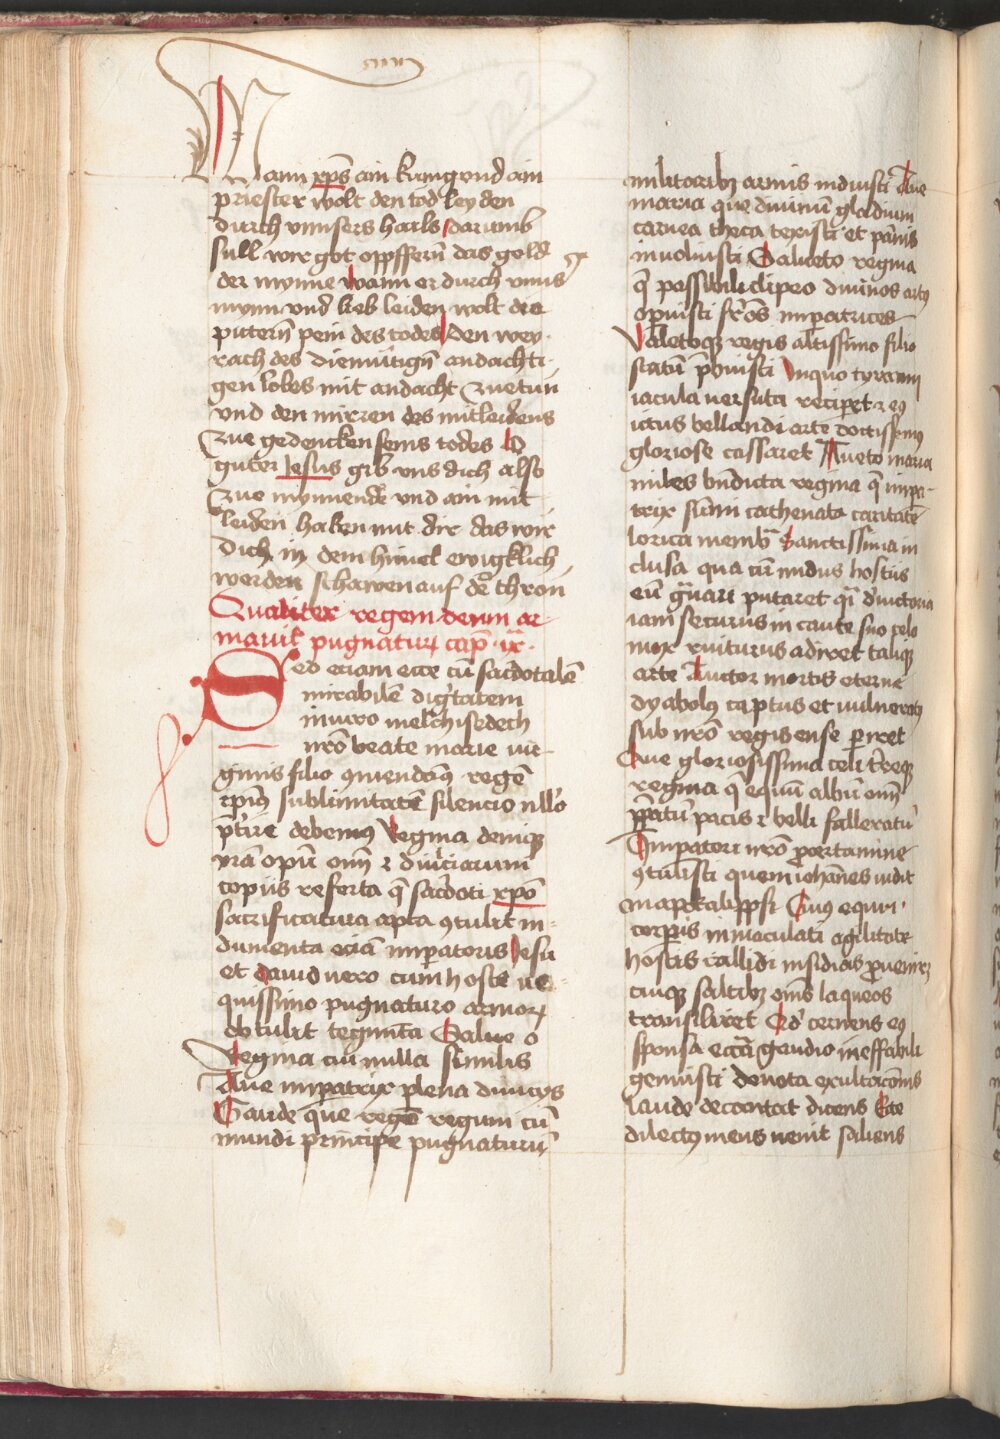 Wann xp̄s ain kunig vnd ain
priester wolt den tod leyden
durch vnnsers hails darumb
sull wir got opffern̄ das gold
der mynne wann er durch vnns
mynn vnd lieb leiden wolt die
pittern̄ pein des todes Den wey-
rach des diemütign̄ andachti-
gen lobes mit andacht zuetun
vnd den mirren des mitleidens
zue gedencken seins todes O
guter Jesus gib vns dich also
zue mynnende vnd ain mit
leiden haben mit dir das wir
dich in dem himel ewigklich
werden schawen auf dē thron
Qualiter regem deum ar-
mauit pugnaturꝝ cap̄ ·ix·
Sed eciam ecce cū sacdotalē
mirabilē dig̅tatem
in vero melchisedech
nrō beate marie vir-
ginis filio ꝯmendāꝰ regē
sublimitatē silencio nllo
p̄tire debemus Regina deniqꝫ
vrā opū om̄ ⁊ diuiciarum
copijs referta q̄ sacdoti xpō
sacrificatura apta ꝯtulit in-
dumenta eciā imꝑatoris Jesu
et dauid vero cum hoste ne-
quissimo pugnaturo armoꝝ
obtulit tegm̄ta Salue o
Regina cui nulla similis
Aue imꝑatrix plena diuicijs
Gaude que regē regum cū
mundi principe pugnaturū
militaribꝫ armis induisti Aue
maria que diuinū gladium
carnea theca texisti et pānis
inuoluisti Salueto regina
q̄ passibili clipeo diuinos artꝰ
opuisti frōs imꝑatrices
Valetoqꝫ regis altissimo filio
statū p̄buisti In quo tyranni
iacula uersuta reciꝑet ⁊ eꝰ
ictus bellandi arte doctissimꝰ
gloriose cassaret Aueto maria
miles bn̄dicta regina q̄ imꝑa-
trix sūmi cathenata caritate
lorica membrā sanctissima in
clusa qua cū nudus hostis
eū gnari putaret qi d' victoria
iam securus in caute suo telo
mox ruiturus adiret taliqꝫ
arte Auctor mortis eterne
dyabolꝰ captus et vulneratꝰ
sub nrō regis ense ꝑiret
Aue gloriosissima celi t̄reqꝫ
regina q̄ equū albū om̄
pacis ⁊ belli falleratū
Imꝑatori nrō ꝓ certamine
ꝯtulisti quem iohānes vidit
in apokalippsi Cuius equi
corꝑis inmaculati agilitate
hostis callidi insidias ꝓuenirꝫ
eiusqꝫ saltibꝫ om̄s laqueos
transiliret Qd' cernens eꝰ
sponsa ecc̄a gaudio ineffabili
gemisti deuota exultacōnis
laude decantat dicens Ecce
dilectꝰ meus uenit saliens